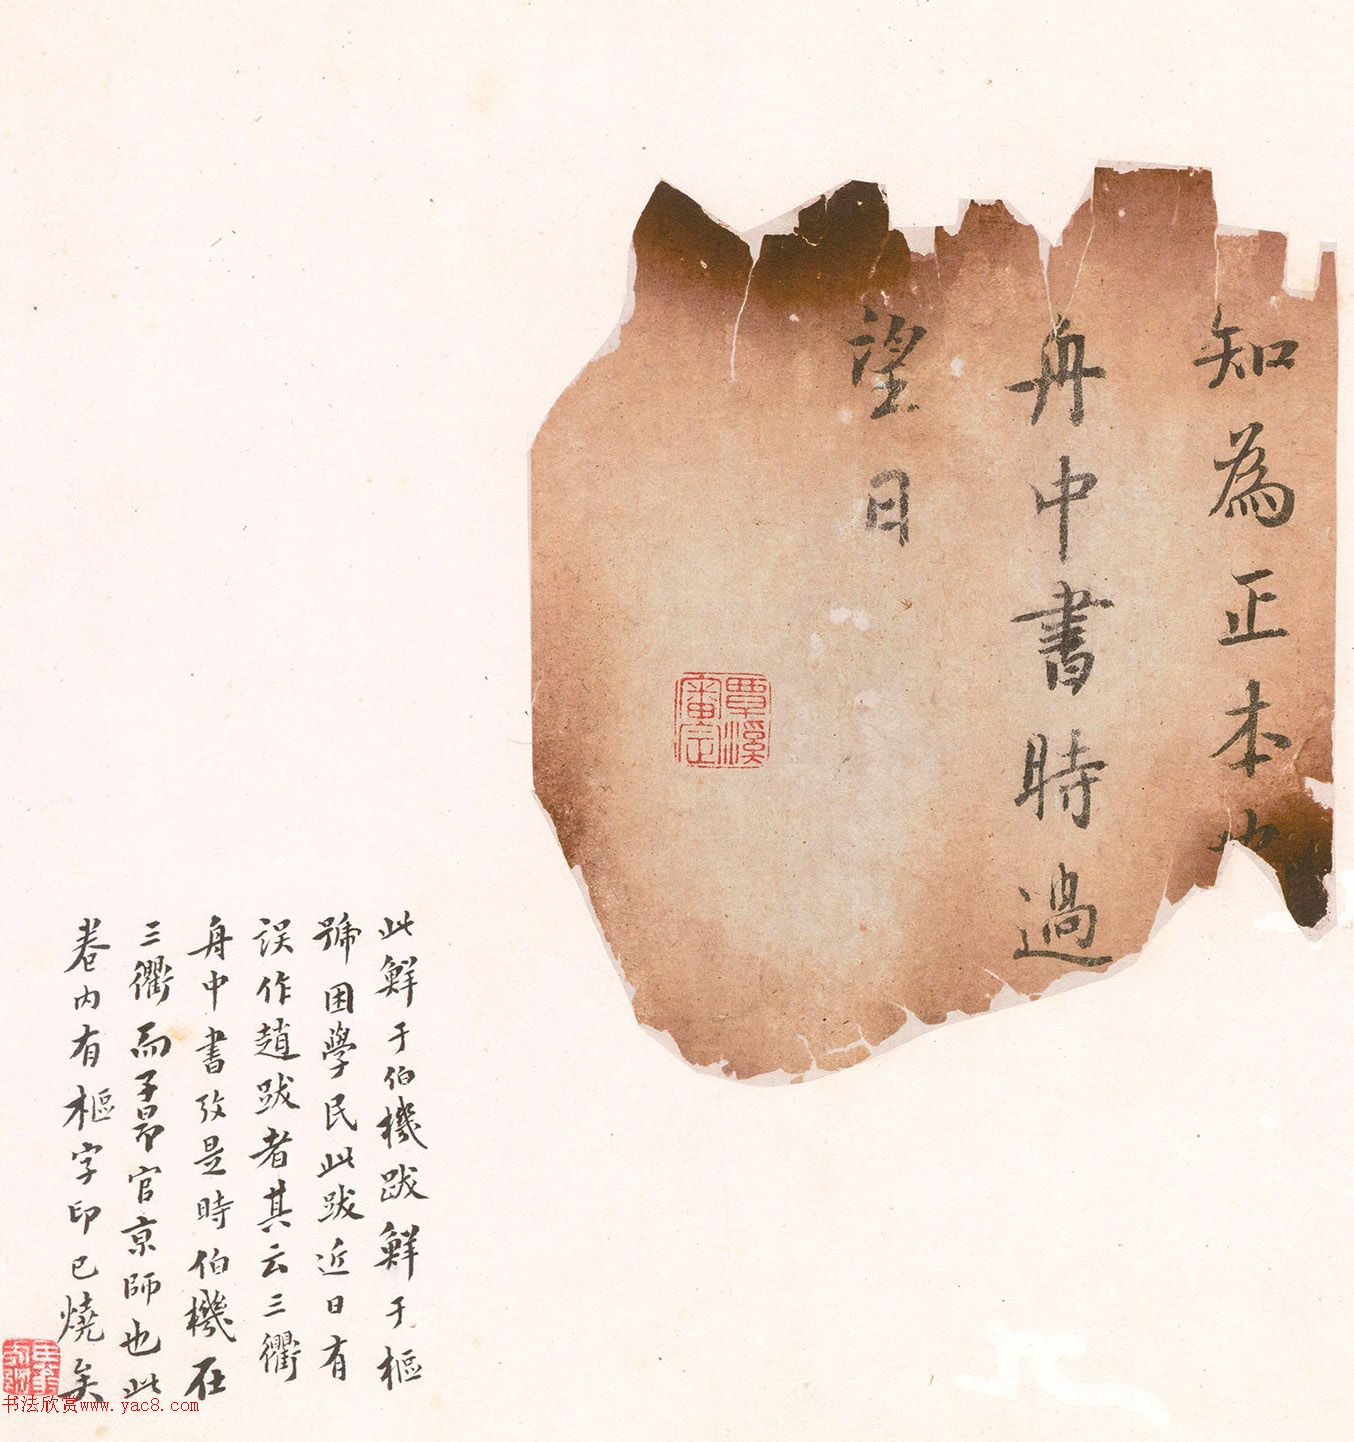 知為正本
舟中書時過
望日
覃溪
審定
此鮮于伯機跋鮮于樞
號困學民此跋近日有
誤作趙跋者其云三衢
舟中書攷是時伯機在
三衢而子昂官京師也此
卷内有樞字印已燒矣
书法欣赏www.yac8.com